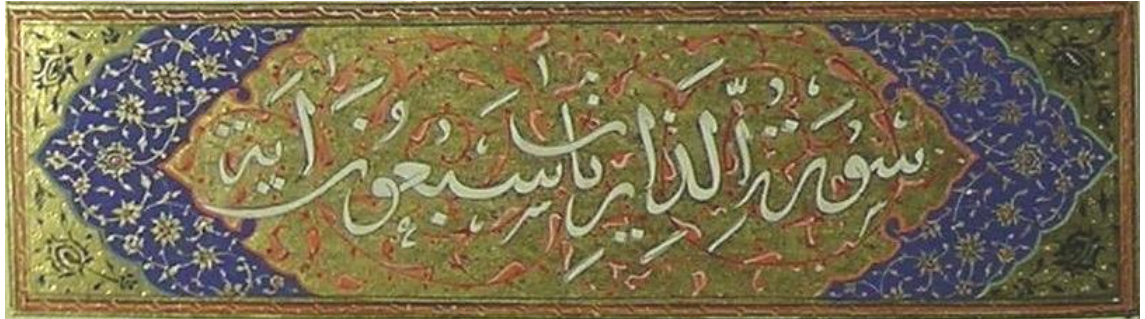 سورة الذاريات سبعون اية